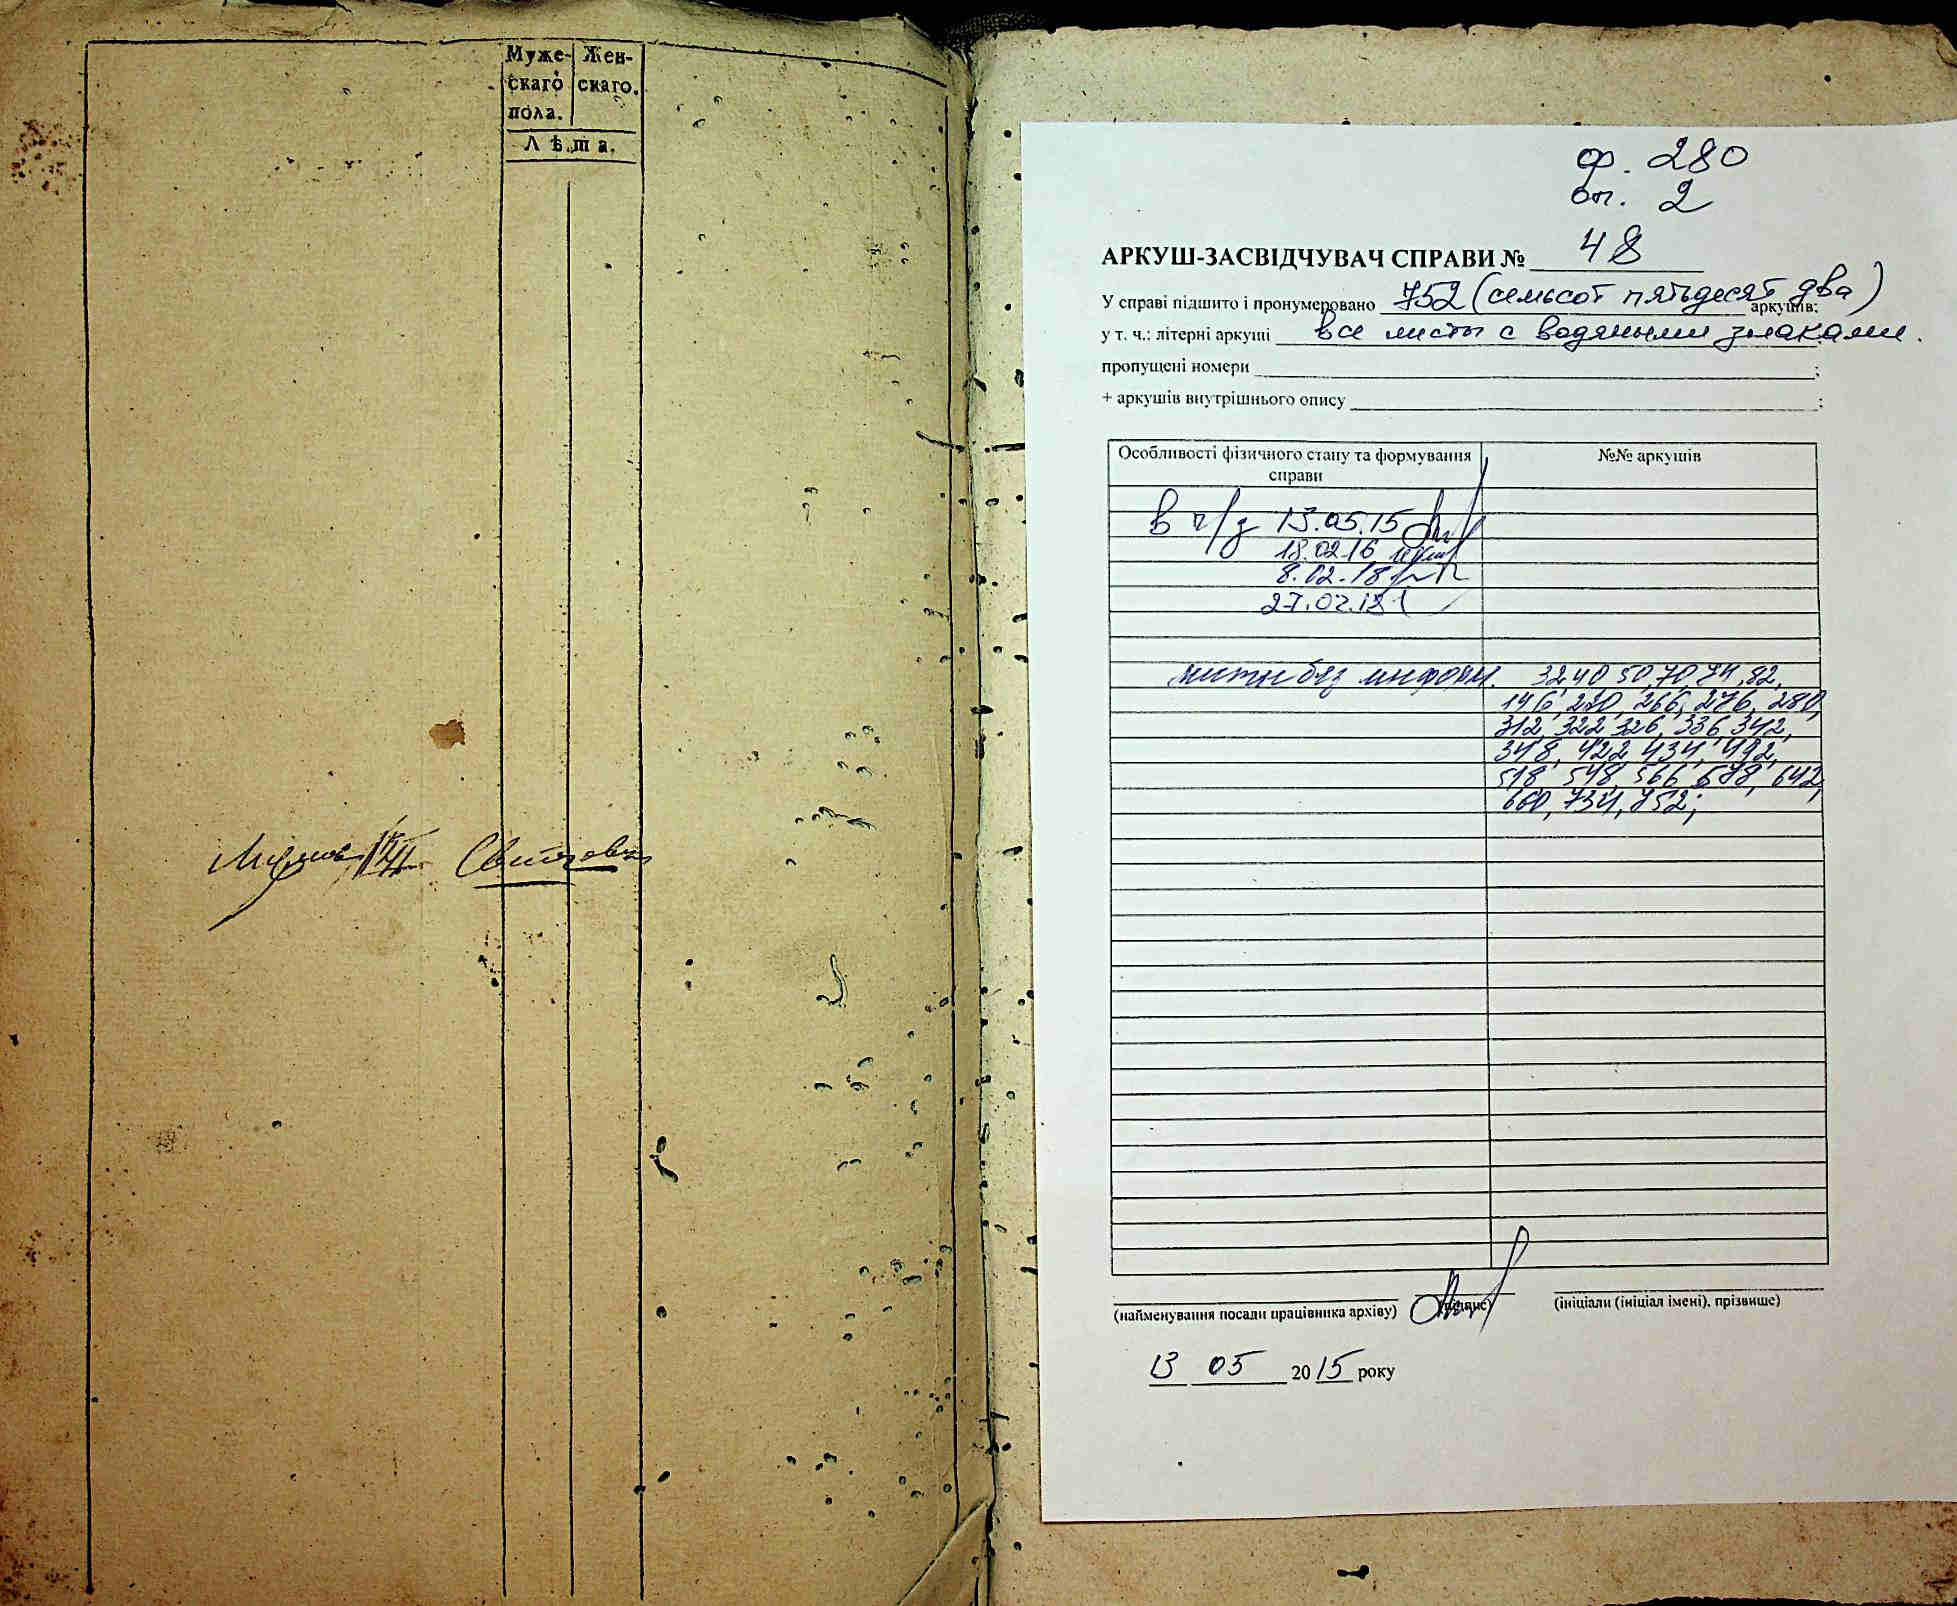 Муже- Жен-
скаго скаго.
пола.
Лѣта.
ф. 280
оп. 2
АРКУШ-ЗАСВІДЧУВАЧ СПРАВИ № 48
У справі підшито і пронумеровано 752 (семьсот пятьдесят два) аркушів;
у т. ч.: літерні аркуші все листы с водяными знаками.
пропущені номери ;
+ аркушів внутрішнього опису ;
Особливості фізичного стану та формування №№ аркушів
справи
в ч/з 13.05.15
18.02.16
8.02.18
27.02.18
листы без информ. 32, 40, 50, 70, 74, 82,
196, 220, 266, 276, 280,
312, 322, 326, 336, 342,
348, 422, 434, 492,
518, 548, 566, 642,
660, 734, 752;
(найменування посади працівника архіву) (підпис) (ініціали (ініціал імені), прізвище)
13 05 2015 року